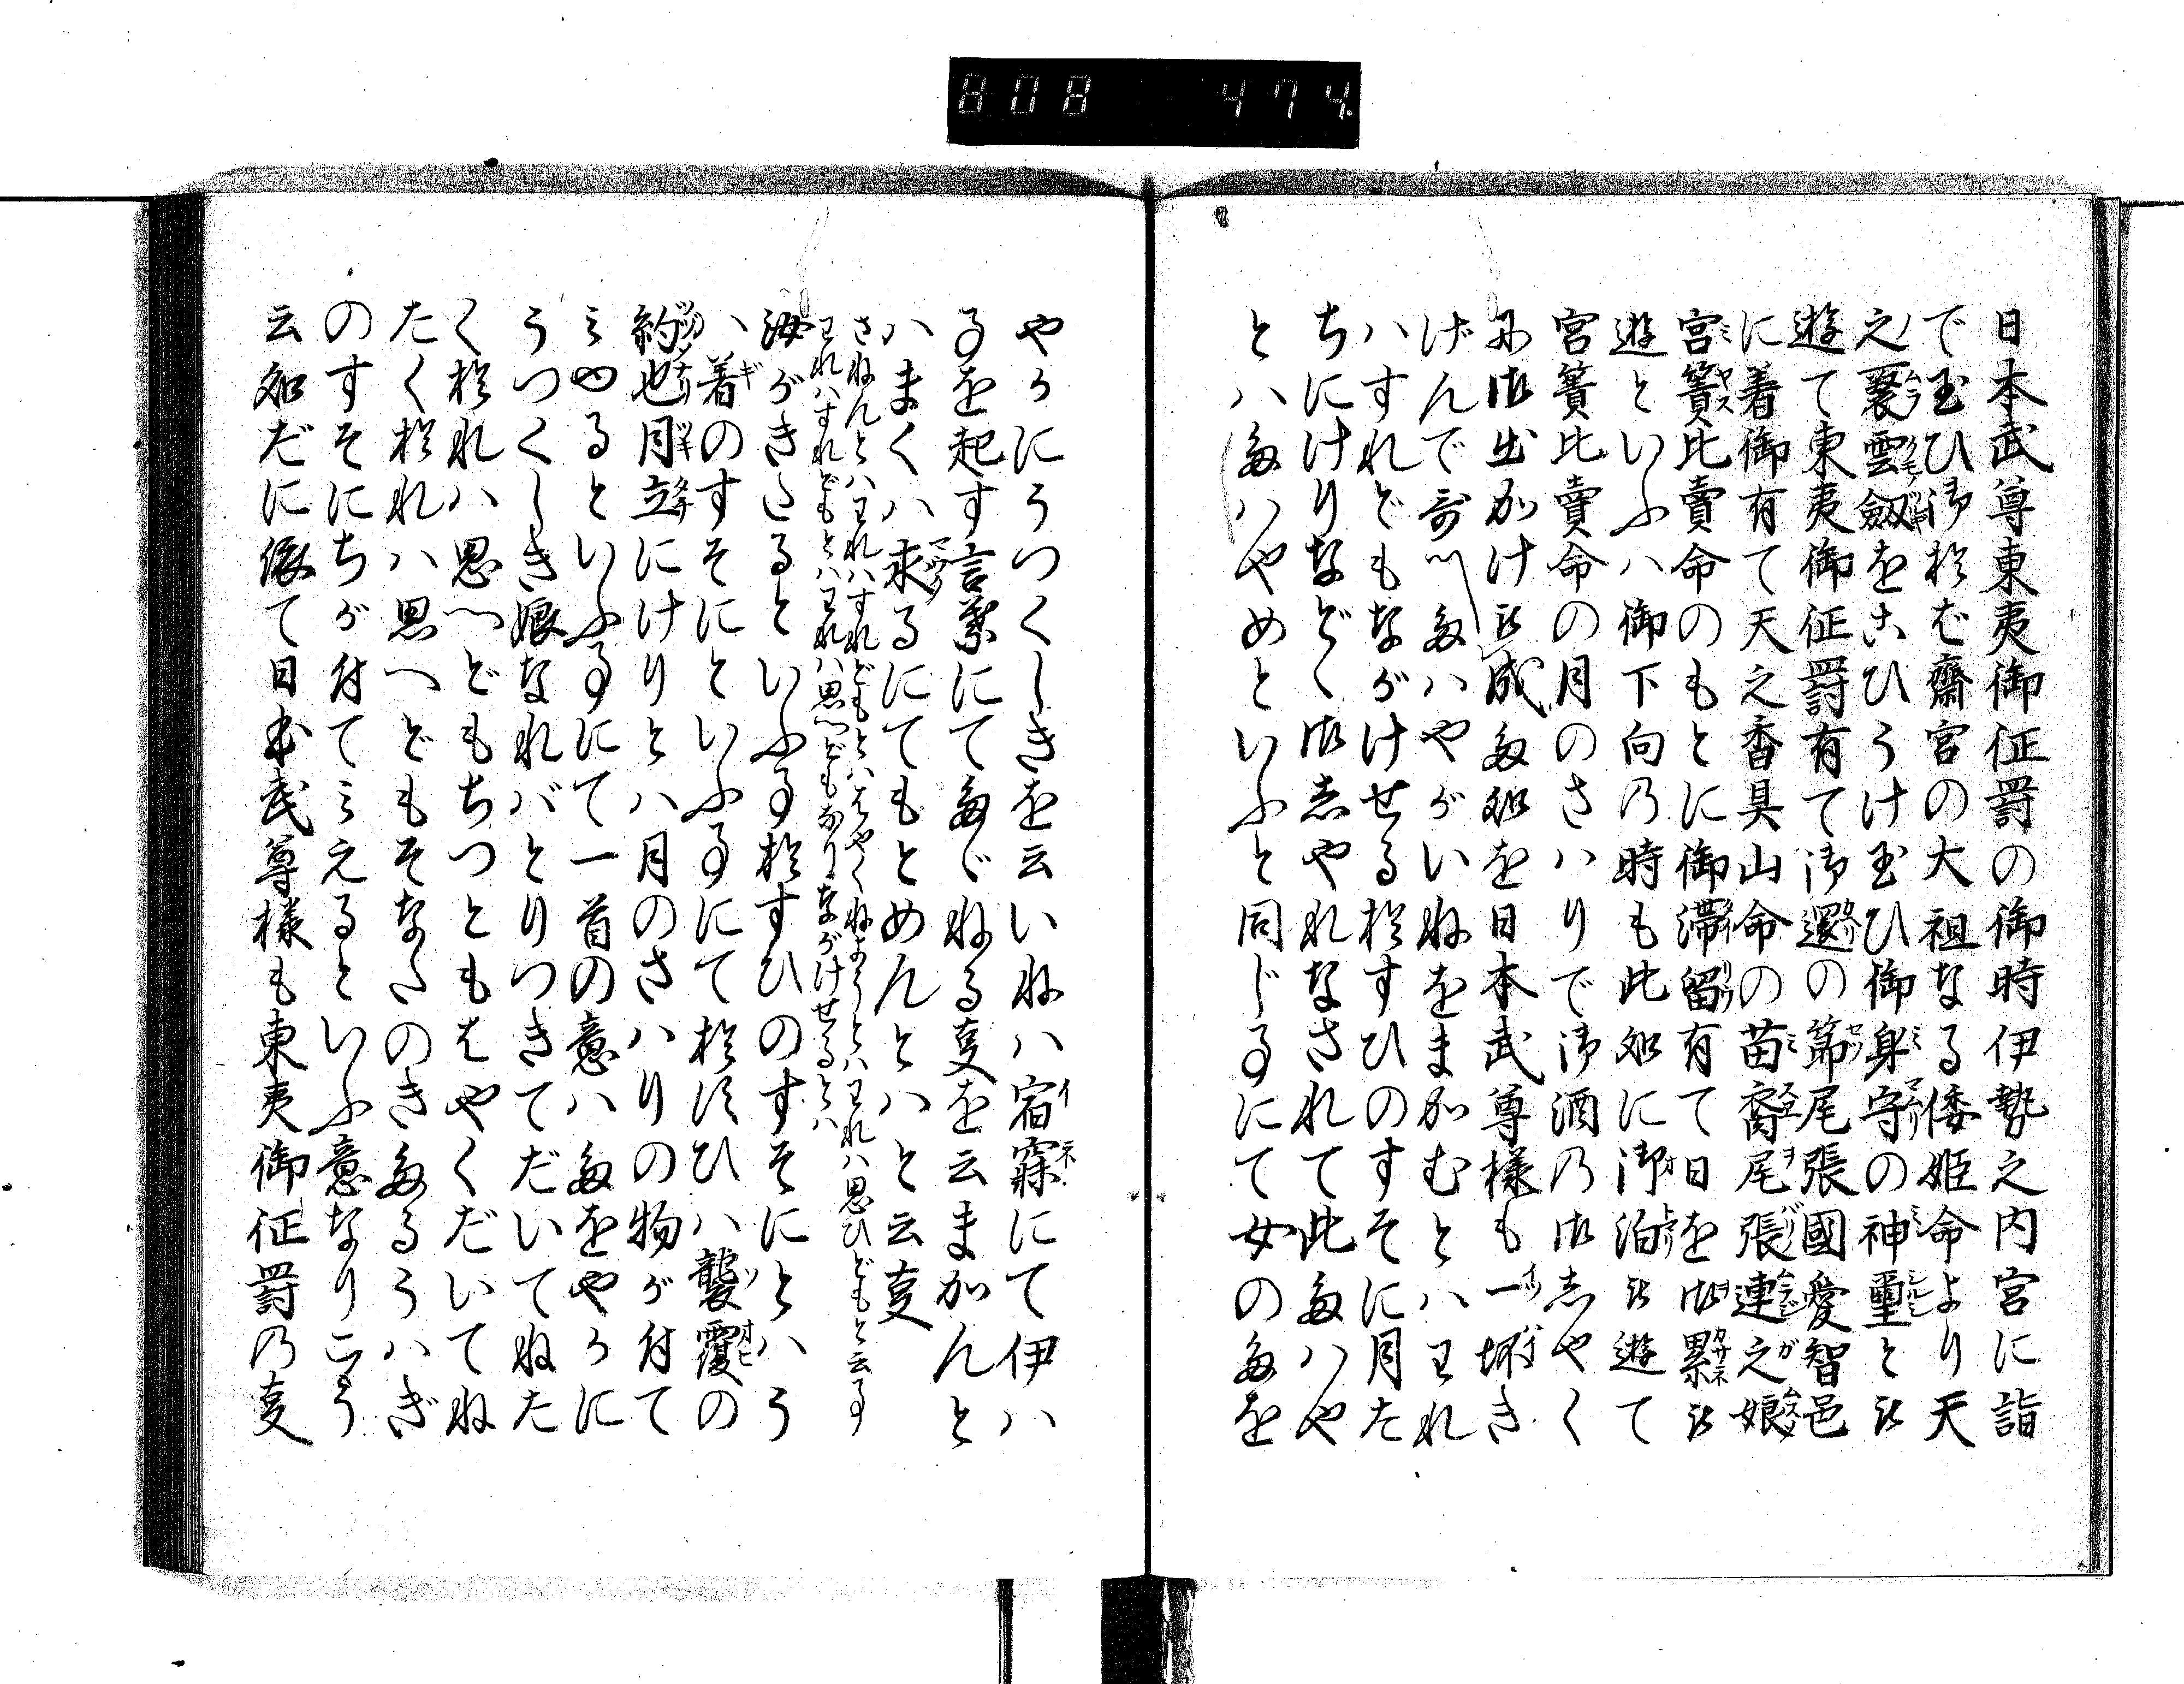 808 474.
日本武尊東夷御征罸の御時伊勢之内宮に詣
で玉ひ御於ば齋宮の大祖なる倭姫命より天
之䕃雲劔をこひうけ玉ひ御身守の神璽とあ
遊て東夷御征罸有て御還の節尾張國愛智邑
に着御有て天之香具山命の苗裔尾張連之娘
宮簀比賣命のもとに御滞留有て日を御累あ
遊といふハ御下向乃時も此処に御泊あ遊て
宮簀比賣命の月のさハりで御酒乃御志やく
に御出かけ成処を日本武尊様も一
げんで哥ハやがいねをまかむとハわれ
ハすれどもながけせる於すひのすそに月た
ちにけりなどゝ御志やれなされて此ハや
とハハやめといふと同じ事にて女のを
やうにうつくしきを云いねハ宿寐にて伊ハ
事を起す言葉にてねる事を云まかんと
ハまくハ求るにてもとめんとハと云事
さねんとハわれハすれどもとハはやくねようとハわれハ思ひどもと云事
われハすれどもとハわれハ思へどもなりながけせるとハ
汝がきたるといふ事於すひのすそにとハう
ハ着のすそにといふ事にて於須ひハ襲覆の
約也月立にけりとハ月のさハりの物が付て
ミゆるといふ事にて一首の意ハをやうに
うつくしき娘なれバとりつきてだいてねた
く於れハ思へどもちつともはやくだいてね
たく於れハ思へどもそなたのきるうハぎ
のすそにちが付てミえるといふ意なりこう
云処だに依て日本武尊様も東夷御征罸乃事